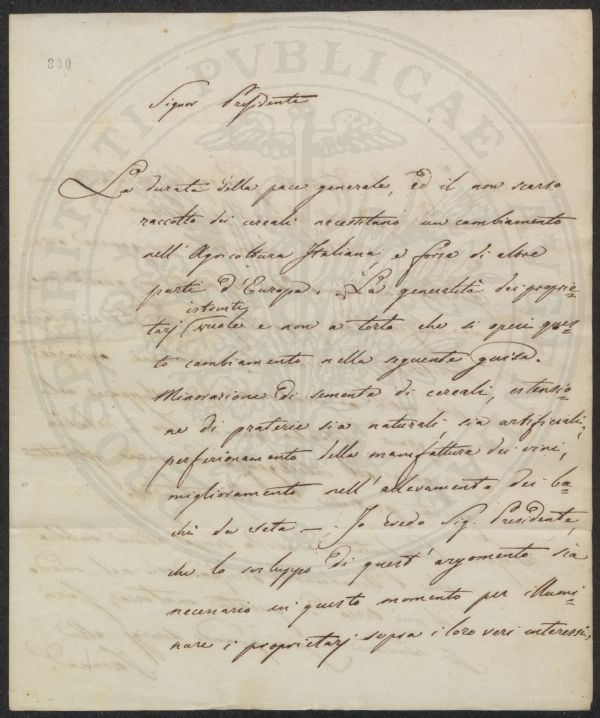 800
PROSPERITATI PUBLICAE AUGENDAE
Signor Presidente
La durata della pace generale, ed il non scarso
raccolto dei cereali necessitano un cambiamento
nell' Agricoltura Italiana, e forse di altre
parte d'Europa. La generalità dei proprie=
istruiti
tarj vuole e non a torto che si operi ques=
to cambiamento nella seguente guisa.
Minorazione di semente di cereali, estensio=
ne di praterie sia naturali, sia artificiali,
perfezionamento della manifattura dei vini,
miglioramento nell' allevamento dei ba=
chi da seta — Io credo Sig. Presidente,
che lo sviluppo di quest' argomento sia
necessario in questo momento per illumi=
nare i proprietarj sopra i loro veri interessi,